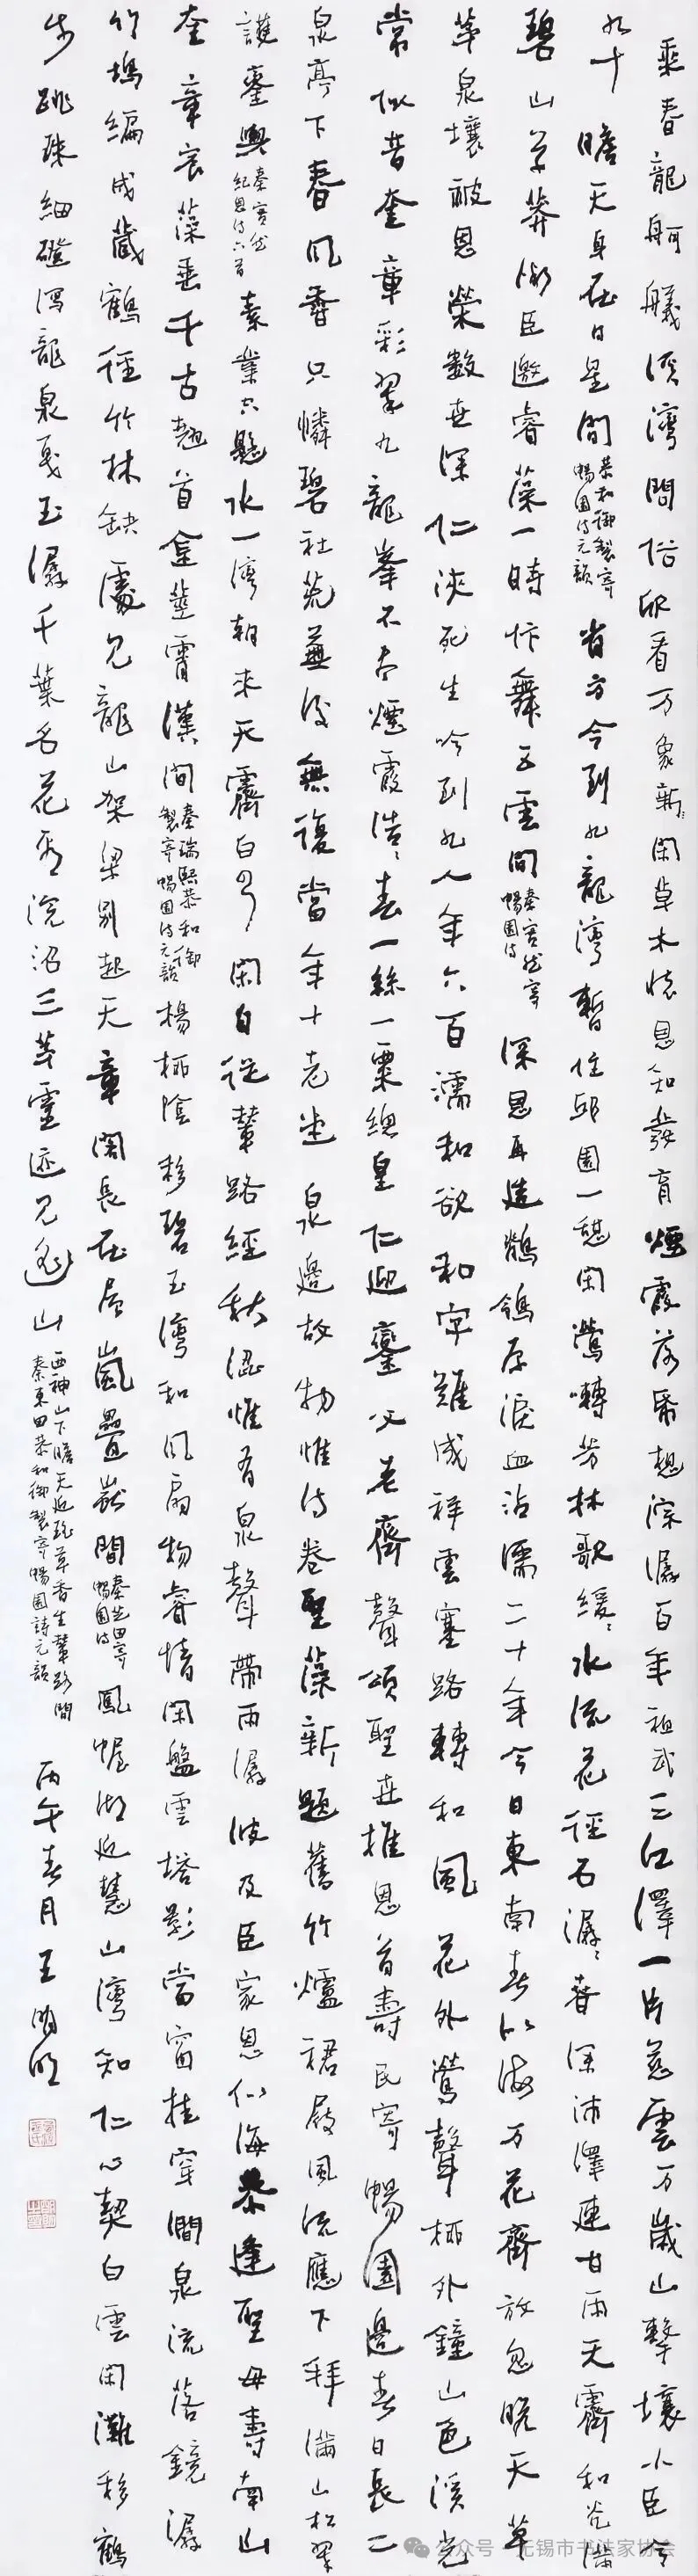 乘春龍舸艤溪灣問俗欣看万象新閑草木懷恩知發育煙霞落筆想淙潺百年祖武三江澤一片慈雲万歲山擊壤小臣今
九十瞻天身在日星間恭和御製寄暢園詩元韻省方今到九龍灣暫住邱園一憩閑鶯囀芳林歌緩緩水流花徑石潺潺春深沛澤連甘雨天霽和光滿
碧山草莽微臣邀睿藻一時忭舞五雲間秦寄暢園詩深恩再造鶺鴒原淚血沾濡二十年今日東南春似海万花齊放忽瞻天草
莘泉壤被恩榮數世深仁浹死生吟到九人年六百濡和欲和字難成祥雲塞路轉和風花外鶯聲柳外鐘山色溪光
常似昔奎章彩翠九龍峯不古煙霞浩浩春一絲一粟總皇仁迎鑾父老齊聲頌聖世推恩首壽民寄暢園邊春日長二
泉亭下春風香只憐碧社荒蕪後無復當年十老堂泉邊故物惟詩卷聖藻新題舊竹爐裙屐風流應下拜滿山松翠
護鑾輿秦紀恩詩六首素業只懸水一灣朝來天霽白雲閑自從輦路經秋澀惟有泉聲帶雨潺波及臣家恩似海恭逢聖母壽南山
奎章宸藻垂千古翹首金莖霄漢間秦瑞熙恭和御製寄暢園詩元韻楊柳陰移碧玉灣和風扇物睿情閑盤雲塔影當窗挂穿澗泉流落鏡潺
竹塢編成藏鶴徑竹林缺處見龍山架梁別起天章閣長在層嵐疊嶽間秦芝田寄暢園詩鳳幄湖近慧山灣知仁心契白雲閑灘移鶴
步跳珠細磴瀉龍泉戛玉潺千葉名花看浣沼三莘靈迹見遙山西神山下瞻天近瑤草香生輦路間秦東田恭和御製寄暢園詩元韻
丙午春月王
公众号·无锡市书法家协会